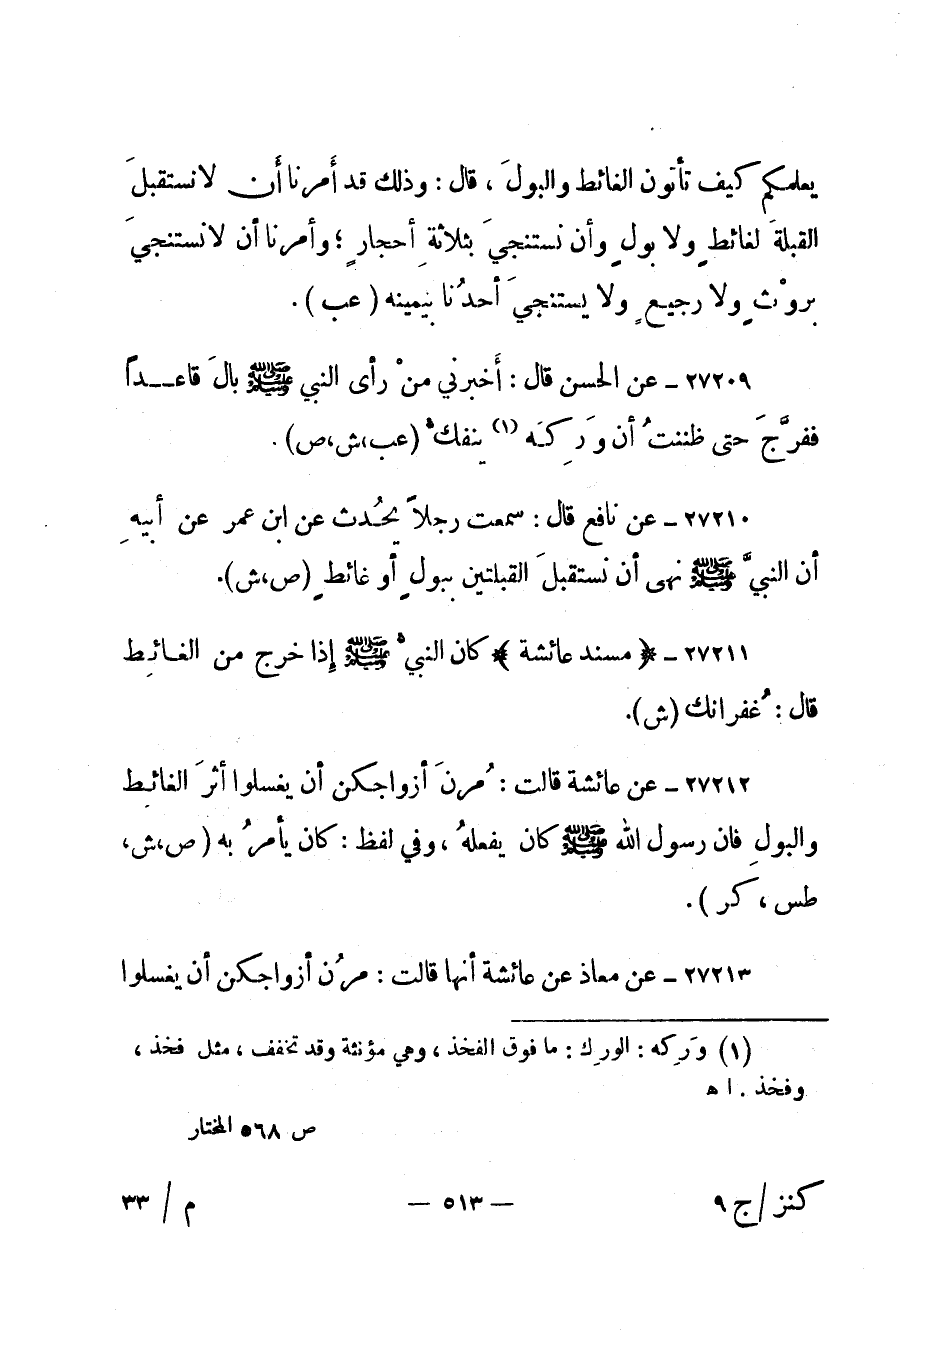 يعلمكم كيف تأتون الغائط والبولَ ، قال : وذلك قد أُمرنا أَن لانستقبلَ
القبلةَ لغائطٍ ولا بولٍ وأن نستنجيَ بثلاثةِ أحجارٍ ؛ وأمرنا أن لانستنجيَ
بروْثٍ ولا رجيعٍ ولا يستنجيَ أحدُنا بيمينه ( عب ) .
٢٧٢٠٩ ــ عن الحسن قال : أَخبرني منْ رأى النبي ﷺ بالَ قاعــداً
ففرَّجَ حتى ظننتُ أن وَرِكَه (١) ينفكُّ (عب،ش،ص) .
٢٧٢١٠ ــ عن نافع قال : سمعت رجلاً يحُدث عن ابن عمر عن أبيهِ
أن النبيَّ ﷺ نهى أن نستقبلَ القبلتين ببولٍ أو غائطٍ (ص،ش).
٢٧٢١١ ــ ﴿ مسند عائشة ﴾ كان النبيُّ ﷺ إِذا خرج من الغـائـطِ
قال : غُفرانك (ش).
٢٧٢١٢ ــ عن عائشة قالت : مُرنَ أزواجكن أن يغسلوا أثرَ الغائـطِ
والبولِ فان رسول الله ﷺ كان يفعلهُ ، وفي لفظ : كان يأمرُ به ( ص،ش،
طس ، كر ) .
٢٧٢١٣ ــ عن معاذ عن عائشة أنها قالت : مرُن أزواجكن أن يغسلوا
(١) وَرِكه : الورِك : ما فوق الفخذ ، وهي مؤنثة وقد تخفف ، مثل فخذ ،
وفخذ . ا ه
ص ٥٦٨ المختار
كنز / ج ٩ — ٥١٣ — م / ٣٣